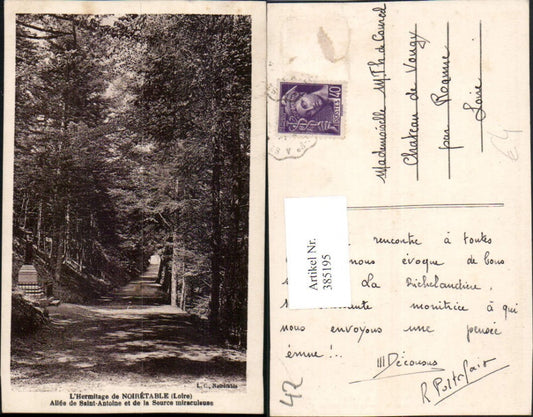 L. C., Noirétable
L'Hermitage de NOIRÉTABLE (Loire)
Allée de Saint-Antoine et de la Source miraculeuse
40
POSTES
Mademoiselle M.Th de
Chateau de Vougy
par Roanne
Loire
Artikel Nr.
385195
rencontre à toutes
nous évoque de bons
La
monitrice à qui
nous envoyons une pensée
émue !..
R Pottofait
42